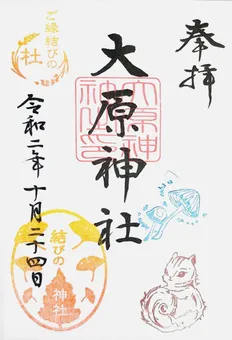 奉拝
大原神社
令和二年十月二十四日
ご縁結びの
社
結びの
神社